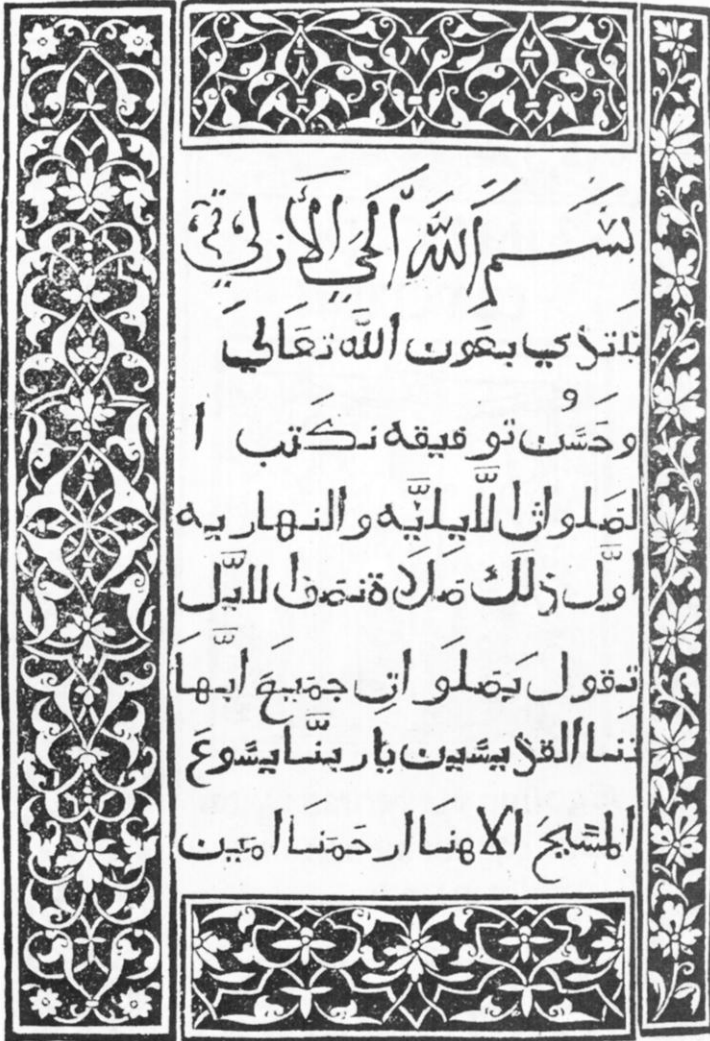 بسم الله الحي الأزلي
نبتدي بعون الله تعالي
وحسن توفيقه نكتب ا
لصلواة الليليه والنهاريه
اول ذلك صلاة نصف الليل
تقول بصلوات جميع ابها
تنا القديسين يا ربنا يسوع
المسيح الاهنا ارحمنا امين